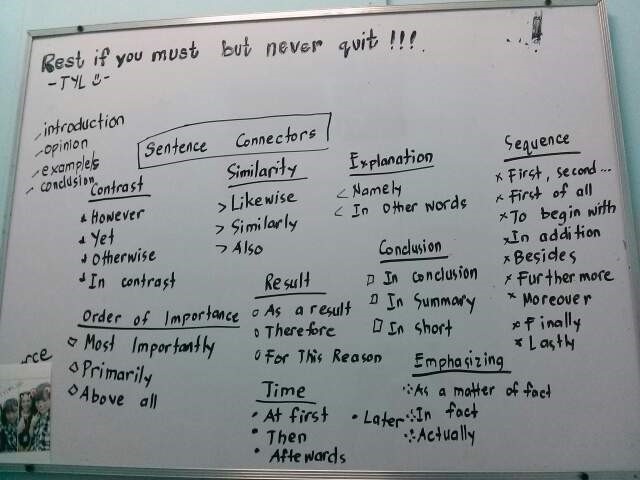 Rest if you must but never quit !!!.
- TYL -
introduction
opinion
example/s
conclusion
Sentence Connectors
Contrast
However
Yet
Otherwise
In contrast
Similarity
> Likewise
> Similarly
> Also
Explanation
< Namely
< In Other words
Sequence
x First, second...
x First of all
x To begin with
x In addition
x Besides
x Further more
x Moreover
x Finally
x Lastly
Conclusion
In conclusion
In Summary
In short
Result
As a result
Therefore
For This Reason
Order of Importance
Most Importantly
Primarily
Above all
Emphasizing
As a matter of fact
In fact
Actually
Time
• At first
• Then
• Aftewards
• Later